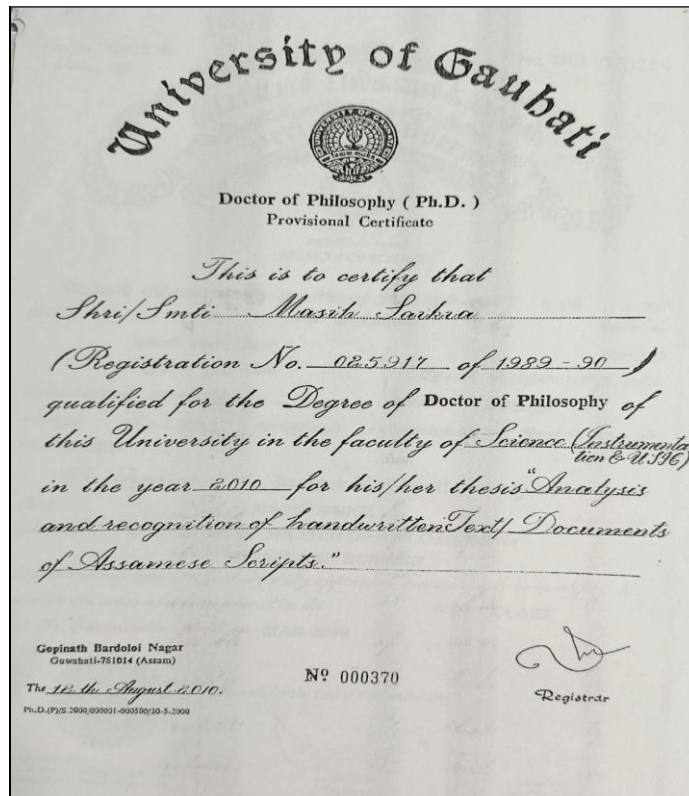 University of Gauhati
Doctor of Philosophy ( Ph.D. )
Provisional Certificate
This is to certify that
Shri/Smti Masih Saikia
(Registration No. 025917 of 1989-90)
qualified for the Degree of Doctor of Philosophy of
this University in the faculty of Science (Instrumenta
tion & USIC)
in the year 2010 for his/her thesis "Analysis
and recognition of handwritten Text/ Documents
of Assamese Scripts."
Gopinath Bardoloi Nagar
Guwahati-781014 (Assam)
The 12 th August 2010.
Nº 000370
Registrar
Ph.D.(P)/S.2000/000001-000500/30-5-2000